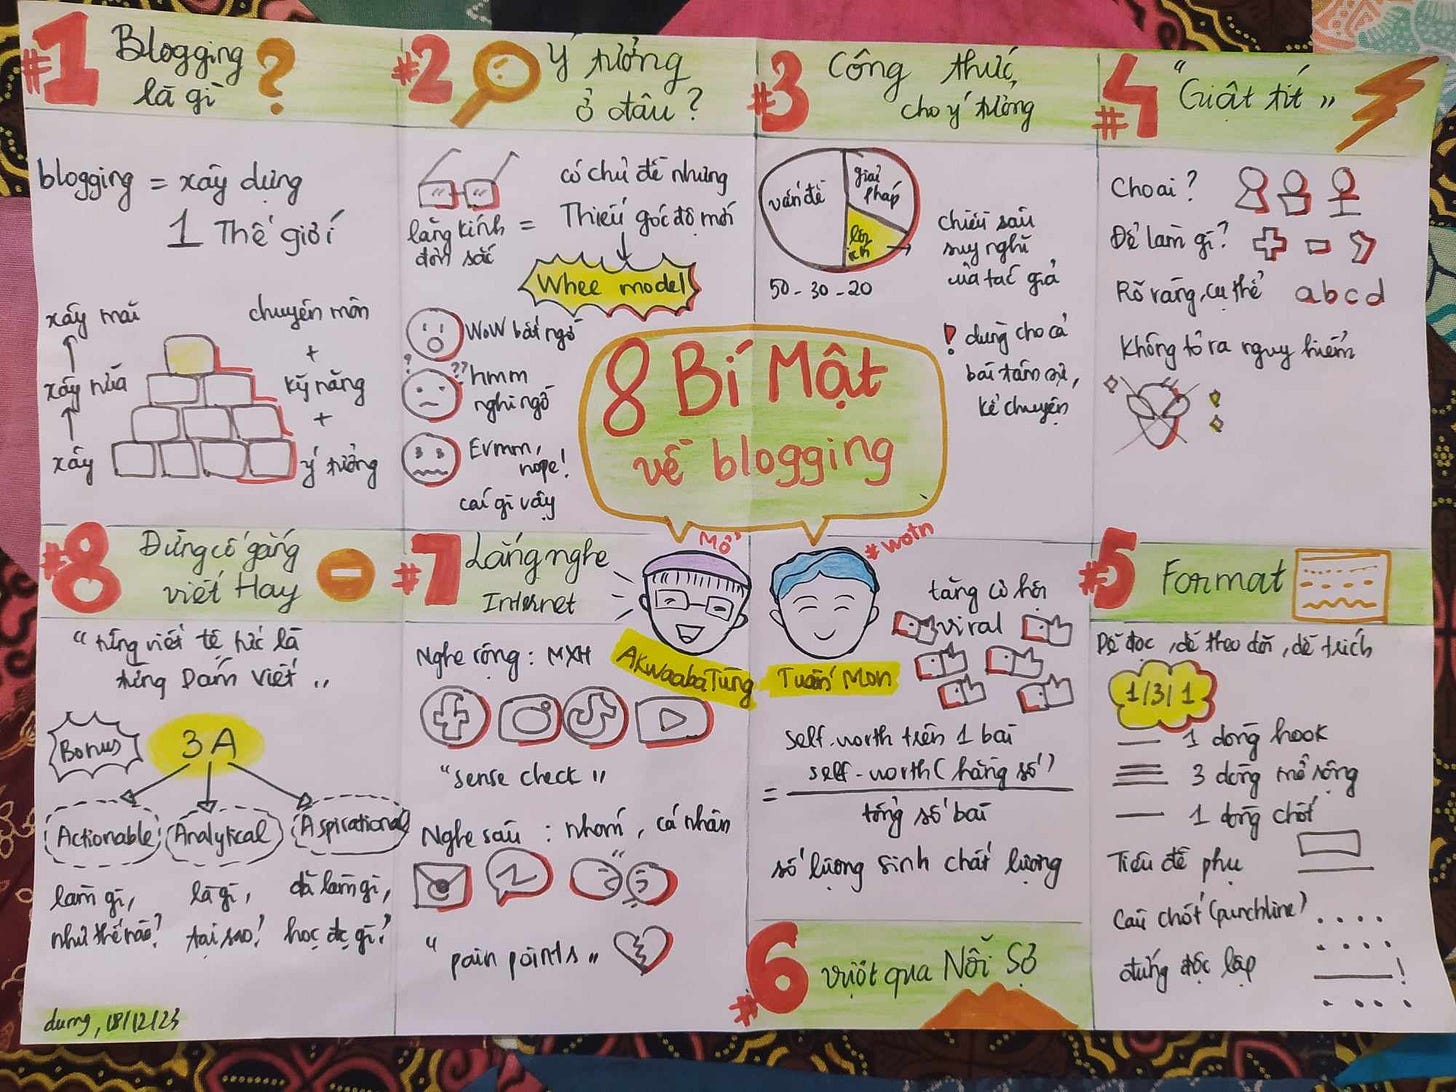 #1 Blogging
là gì ?
blogging = xây dựng
1 Thế giới
xây mãi
xây nữa
xây
chuyên môn
+
kỹ năng
+
ý tưởng
#2 Ý tưởng
ở đâu?
lăng kính =
đơn sắc
có chủ đề nhưng
Thiếu góc độ mới
Whee model
WoW bất ngờ
? ?? hmm
nghi ngờ
Ewmm,
nope!
cái gì vậy
#3 Công thức
cho ý tưởng
vấn đề
giải
pháp
lợi
ích
50 - 30 - 20
chiều sâu
suy nghĩ
của tác giả
! dùng cho cả
bài tâm sự,
kể chuyện
#4 "Giật tít"
Cho ai?
Để làm gì?
Rõ ràng, cụ thể a b c d
Không tỏ ra nguy hiểm
8 Bí Mật
về blogging
Mơ
#wotn
Akwaaba Tùng
Tuấn Mon
#5 Format
Dễ đọc, dễ theo dõi, dễ trích
1/3/1
1 dòng hook
3 dòng mở rộng
1 dòng chốt
Tiêu đề phụ
Câu chốt (punchline)
đứng độc lập
!
#6 vượt qua Nỗi Sợ
tăng cơ hội
viral
self-worth trên 1 bài
= self-worth (hằng số)
tổng số bài
số lượng sinh chất lượng
#7 Lắng nghe
Internet
Nghe rộng: MXH
"sense check"
Nghe sâu: nhóm, cá nhân
"pain points"
#8 Đừng cố gắng
viết Hay
"từng viết tệ tức là
từng Dám viết"
Bonus
3A
Actionable
Analytical
Aspirational
làm gì,
như thế nào?
là gì,
tại sao?
đã làm gì,
học đc gì?
dung, 08/12/23